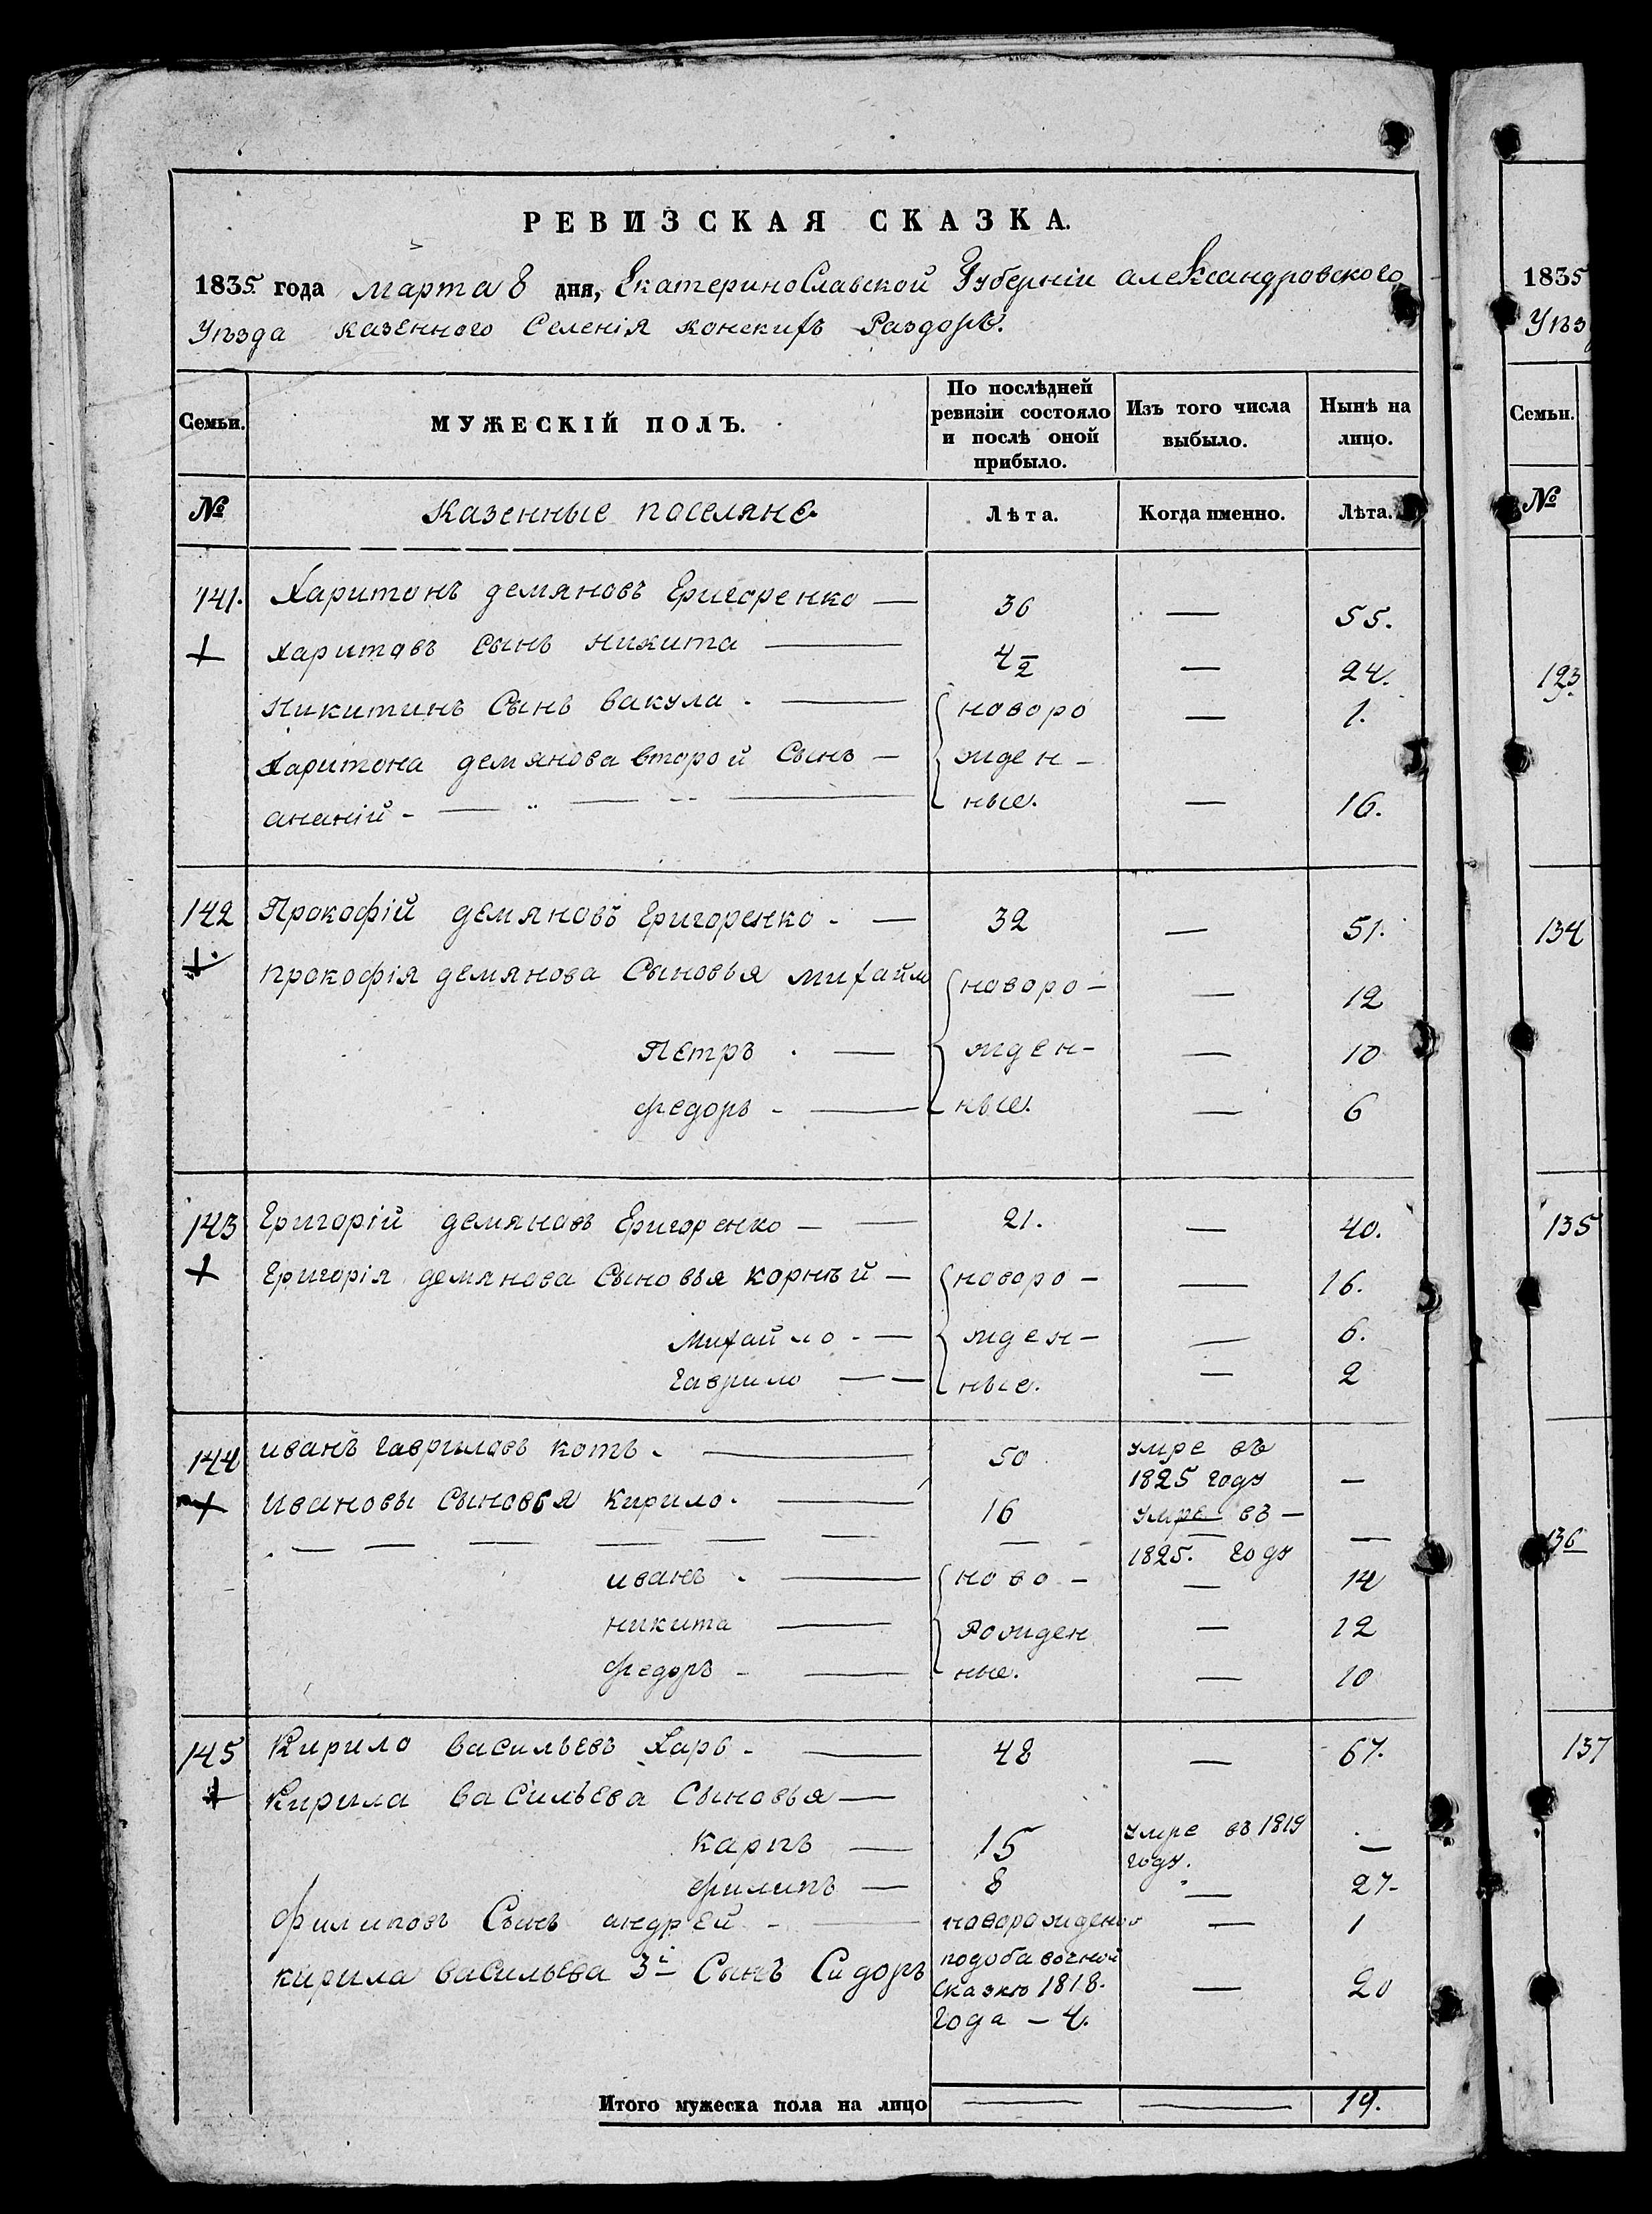 РЕВИЗСКАЯ СКАЗКА.
1835 года марта 8 дня, Екатеринославской Губерніи александровского
Уѣзда казенного Селенія конскихъ Раздоръ.
Семьи.
МУЖЕСКІЙ ПОЛЪ.
По послѣдней ревизіи состояло и послѣ оной прибыло.
Изъ того числа выбыло.
Нынѣ на лицо.
№ казенные поселяне Лѣта. Когда именно. Лѣта.
141. Харитонъ демяновъ Григоренко — 36 — 55.
Харитовъ Сынъ никита — 4 1/2 — 24.
Никитинъ Сынъ вакула . — новоро — 1.
Харитона демянова второй Сынъ — жден -
ананій - — ные. — 16.
142 Прокофій демяновъ Григоренко . — 32 — 51.
прокофія демянова Сыновья михайло новоро — — 12
Петръ . — жден - — 10
федоръ - — ные. — 6
143 Григорій демяновъ Григоренко — 21. — 40.
Григорія демянова Сыновья корнѣй — новоро — — 16.
Михайло . — жден — — 6.
Гаврило — — ные. — 2
144 иванъ гавриловъ котъ . — 50 умре въ
1825 году —
ивановы Сыновья Кирило . — 16 умре въ —
1825. году —
иванъ . — ново — — 14
никита — Рожден — 12
федоръ - — ные. — 10
145 Кирило васильевъ Харь . — 48 — 67.
Кирила васильева Сыновья —
карпъ — 15 умре въ 1819
году. —
филипъ — 8 — 27.
филиповъ Сынъ андрей - — новорожденой — 1
кирила васильева 3й Сынъ Сидоръ подобавочной
Сказкѣ 1818.
года — 4. — 20
Итого мужеска пола на лицо — — 19.
1835
Уѣз
Семьи.
№
123
134
135
136
137